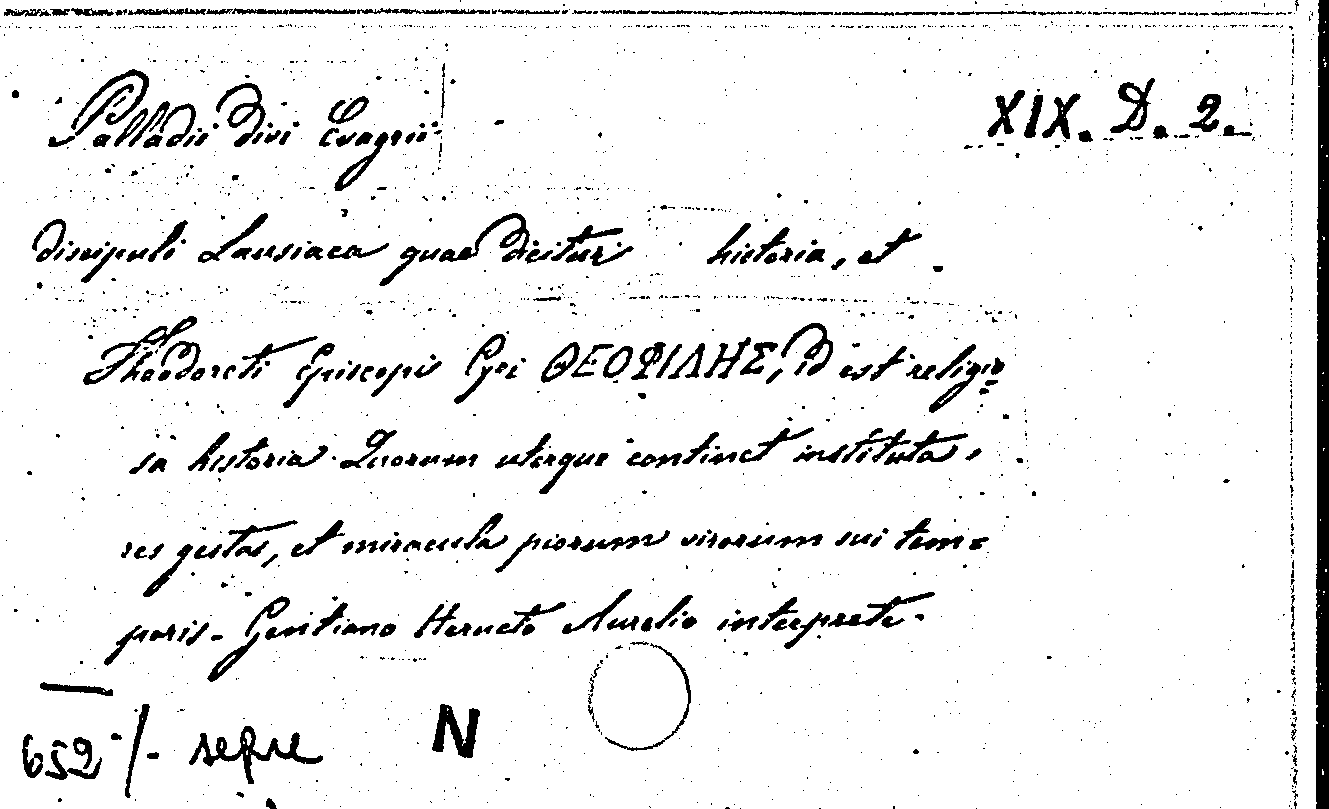 XIX. D. 2.
Palladii divi Evagrii
discipuli Lausiaca quae dicitur historia, et
Theodoreti Episcopi Cyri ΘΕΟΦΙΛΗΣ, id est religio=
sa historia. Quorum uterque continet instituta,
res gestas, et miracula piorum virorum sui tem=
poris. Gentiano Herveto Aurelio interprete.
652 /- segue
N